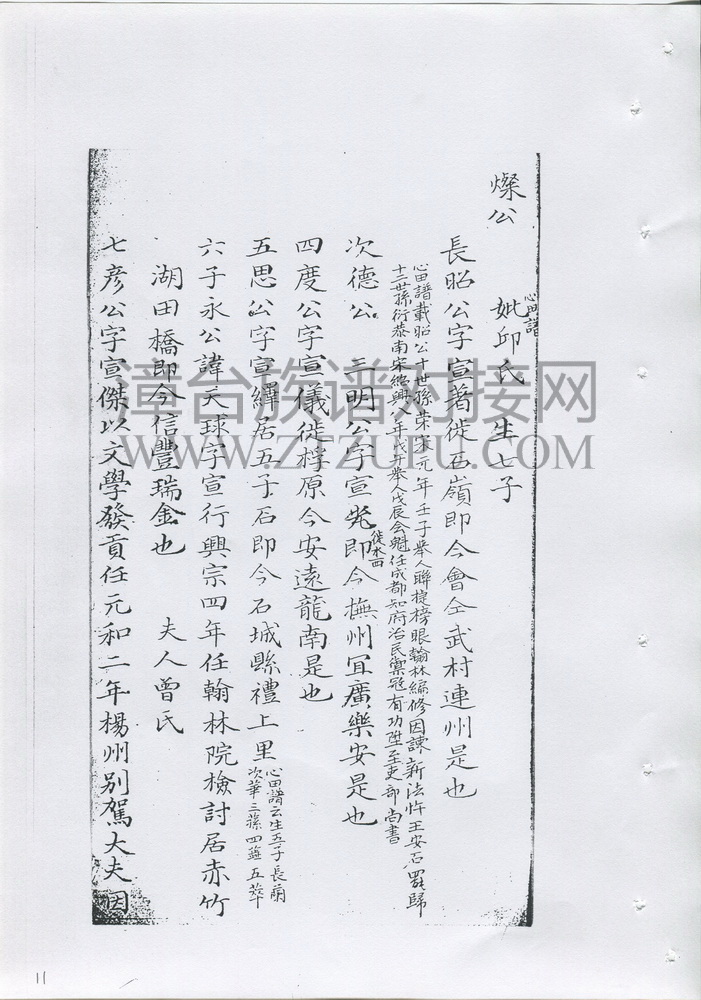 燦公
心田譜
妣邱氏 生七子
長昭公字宣著徙石嶺即今會仝武村連州是也
心田譜載昭公十世孫榮宋元年壬子舉人聯捷榜眼翰林編修因諫新法忤王安石罷歸
十二世孫衍恭南宋紹興八年戊午舉人戊辰会魁任成都知府治民禦寇有功陞至吏部尚書
次德公 三明公字宣堯即今撫州宜廣樂安是也
徙水西
四度公字宣儀徙桴原今安遠龍南是也
五思公字宣繹居五子石即今石城縣禮上里
心田譜云生五子長蘭
次華三蓀四蓝五萃
六子永公諱天球字宣行興宗四年任翰林院檢討居赤竹
湖田橋即今信豐瑞金也 夫人曾氏
七彥公字宣傑以文學發貢任元和二年楊州別駕大夫因
漳台族谱对接网
WWW.ZTZUPU.COM
11